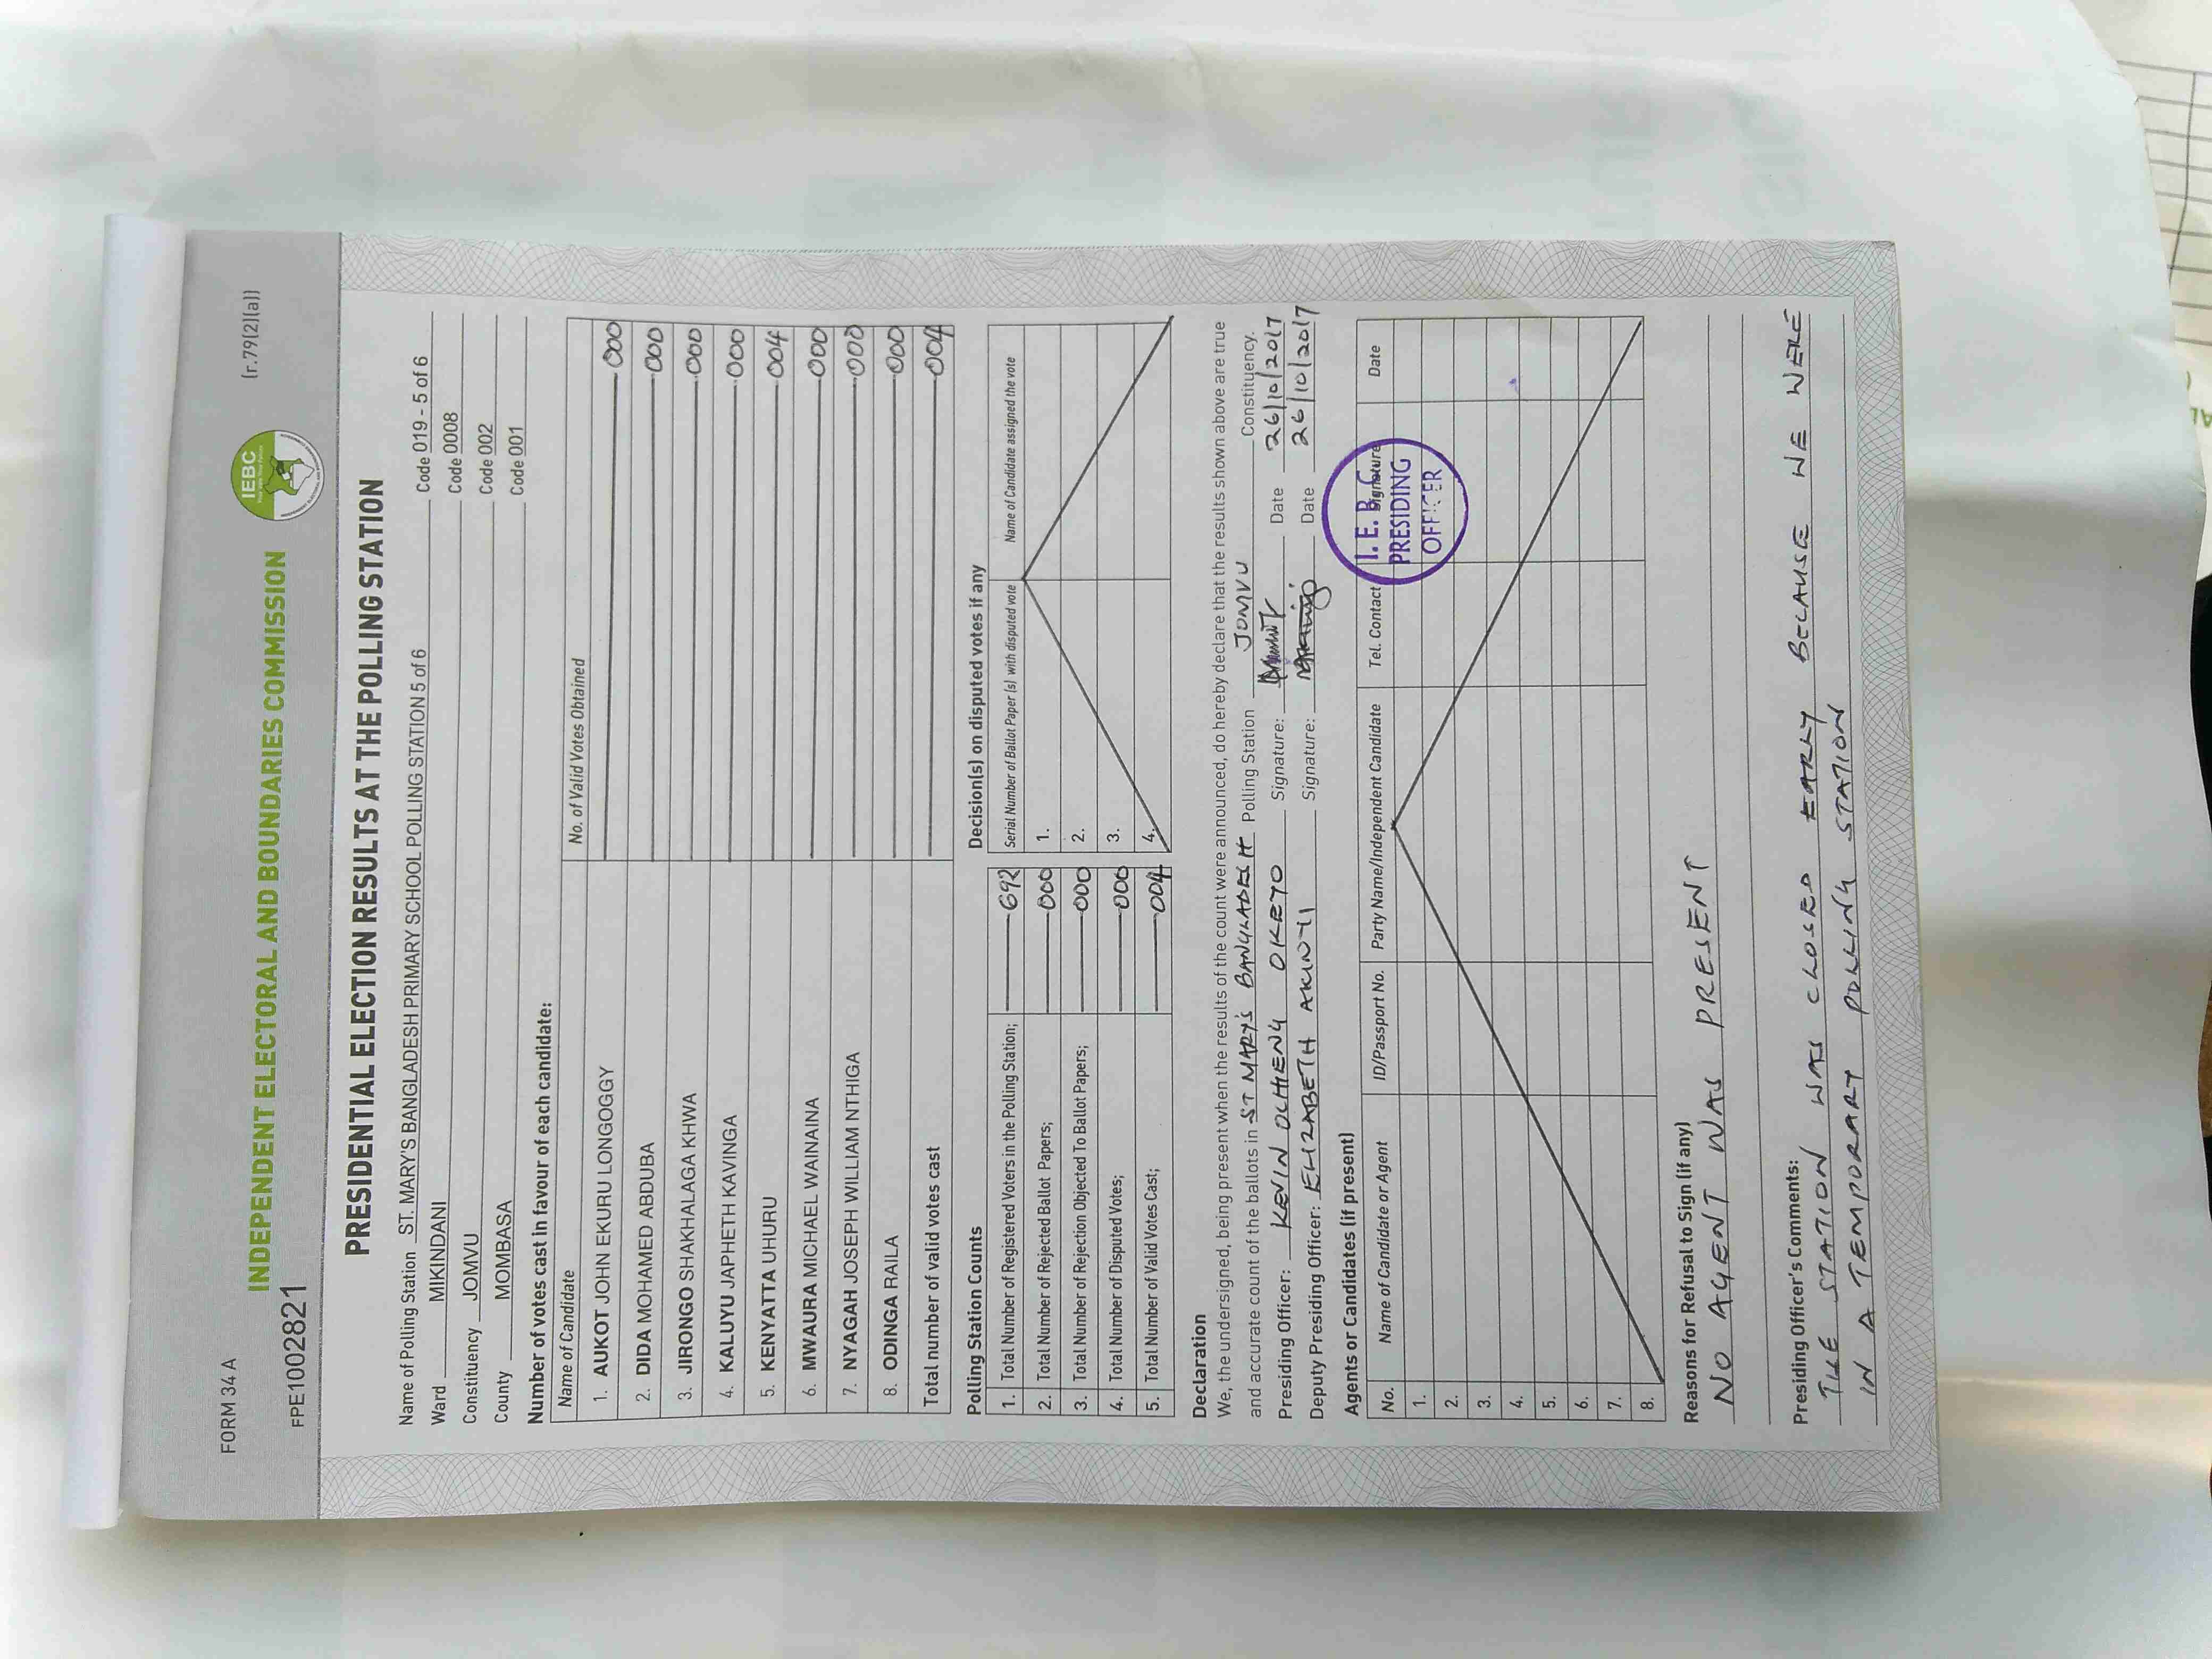 FORM 34 A
(r.79(2)(a))
IEBC
INDEPENDENT ELECTORAL AND BOUNDARIES COMMISSION
FPE1002821
PRESIDENTIAL ELECTION RESULTS AT THE POLLING STATION
Name of Polling Station ST. MARY'S BANGLADESH PRIMARY SCHOOL POLLING STATION 5 of 6 Code 019 - 5 of 6
Ward MIKINDANI Code 0008
Constituency JOMVU Code 002
County MOMBASA Code 001
Number of votes cast in favour of each candidate:
Name of Candidate No. of Valid Votes Obtained
1. AUKOT JOHN EKURU LONGOGGY 000
2. DIDA MOHAMED ABDUBA 000
3. JIRONGO SHAKHALAGA KHWA 000
4. KALUYU JAPHETH KAVINGA 000
5. KENYATTA UHURU 004
6. MWAURA MICHAEL WAINAINA 000
7. NYAGAH JOSEPH WILLIAM NTHIGA 000
8. ODINGA RAILA 000
Total number of valid votes cast 004
Polling Station Counts
1. Total Number of Registered Voters in the Polling Station; 692
2. Total Number of Rejected Ballot Papers; 000
3. Total Number of Rejection Objected To Ballot Papers; 000
4. Total Number of Disputed Votes; 000
5. Total Number of Valid Votes Cast; 004
Decision(s) on disputed votes if any
Serial Number of Ballot Paper (s) with disputed vote Name of Candidate assigned the vote
1.
2.
3.
4.
Declaration
We, the undersigned, being present when the results of the count were announced, do hereby declare that the results shown above are true
and accurate count of the ballots in ST MARY'S BANGLADESH Polling Station JOMVU Constituency.
Presiding Officer: KEVIN OCHIENG OKEYO Signature: Date 26/10/2017
Deputy Presiding Officer: ELIZABETH AKINYI Signature: Date 26/10/2017
Agents or Candidates (if present)
No. Name of Candidate or Agent ID/Passport No. Party Name/Independent Candidate Tel. Contact Signature Date
1.
2.
3.
4.
5.
6.
7.
8.
I. E. B. C.
PRESIDING
OFFICER
Reasons for Refusal to Sign (if any)
NO AGENT WAS PRESENT
Presiding Officer's Comments:
THE STATION WAS CLOSED EARLY BECAUSE WE WERE
IN A TEMPORARY POLLING STATION